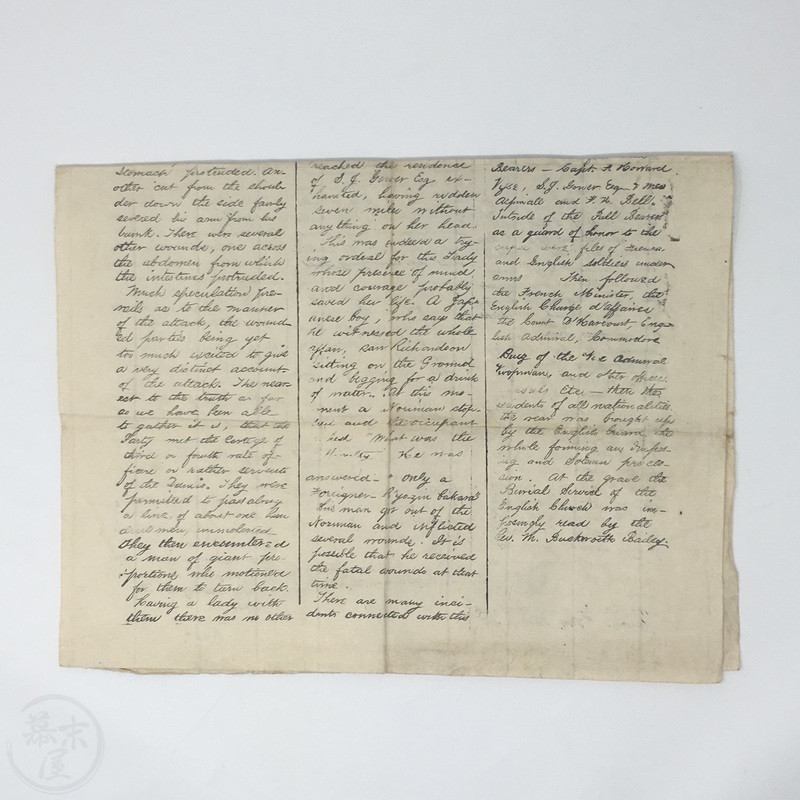 stomach protruded. An-
other cut from the shoul-
der down the side fairly
severed his arm from his
trunk. There were several
other wounds, one across
the abdomen from which
the intestines protruded.
Much speculation pre-
vails as to the manner
of the attack, the wound-
ed parties being yet
too much excited to give
a very distinct account
of the attack. The near-
est to the truth as far
as we have been able
to gather it is, that the
Party met the Cortege of
third or fourth rate of-
ficers or rather servants
of the Daimio. They were
permitted to pass along
a line, of about one hun
dred men, unmolested
They there encountered
a man of giant pro-
portions, who motioned
for them to turn back.
Having a lady with
them there was no other
reached the residence
of S. J. Gower Esq ex-
hausted, having ridden
seven miles without
anything on her head.
This was indeed a try-
ing ordeal for this Lady
whose presence of mind
and courage probably
saved her life. A Japa-
nese boy, who says that
he witnessed the whole
affair, saw Richardson
sitting on the Ground
and begging for a drink
of water. At this mo-
ment a Norimon stop-
ped and the occupant
What was the
He was
answered— only a
Foreigner—
This man got out of the
Norimon and inflicted
several wounds. It is
possible that he received
the fatal wounds at that
time.
There are many inci-
dents connected with this
Bearers — Capt. F. Howard
Vyse, S.J. Gower Esq — & Mess
Aspinall and F. H. Bell.
Outside of the Pall Bearers
as a guard of honor to the
were files of French
and English soldiers under
arms Then followed
the French Minister, the
English Chargé d'affaires
the Count D'Harcourt— Eng-
lish Admiral, Commodore
of the Admiral
and other officers
Etc — then the
residents of all nationalities.
The rear was brought up
by the English Guard, the
whole forming an impos-
ing and Solemn proces-
sion. At the grave the
Burial Service of the
English Church was im-
posingly read by the
Rev. M. Buckworth Bailey.
幕末屋